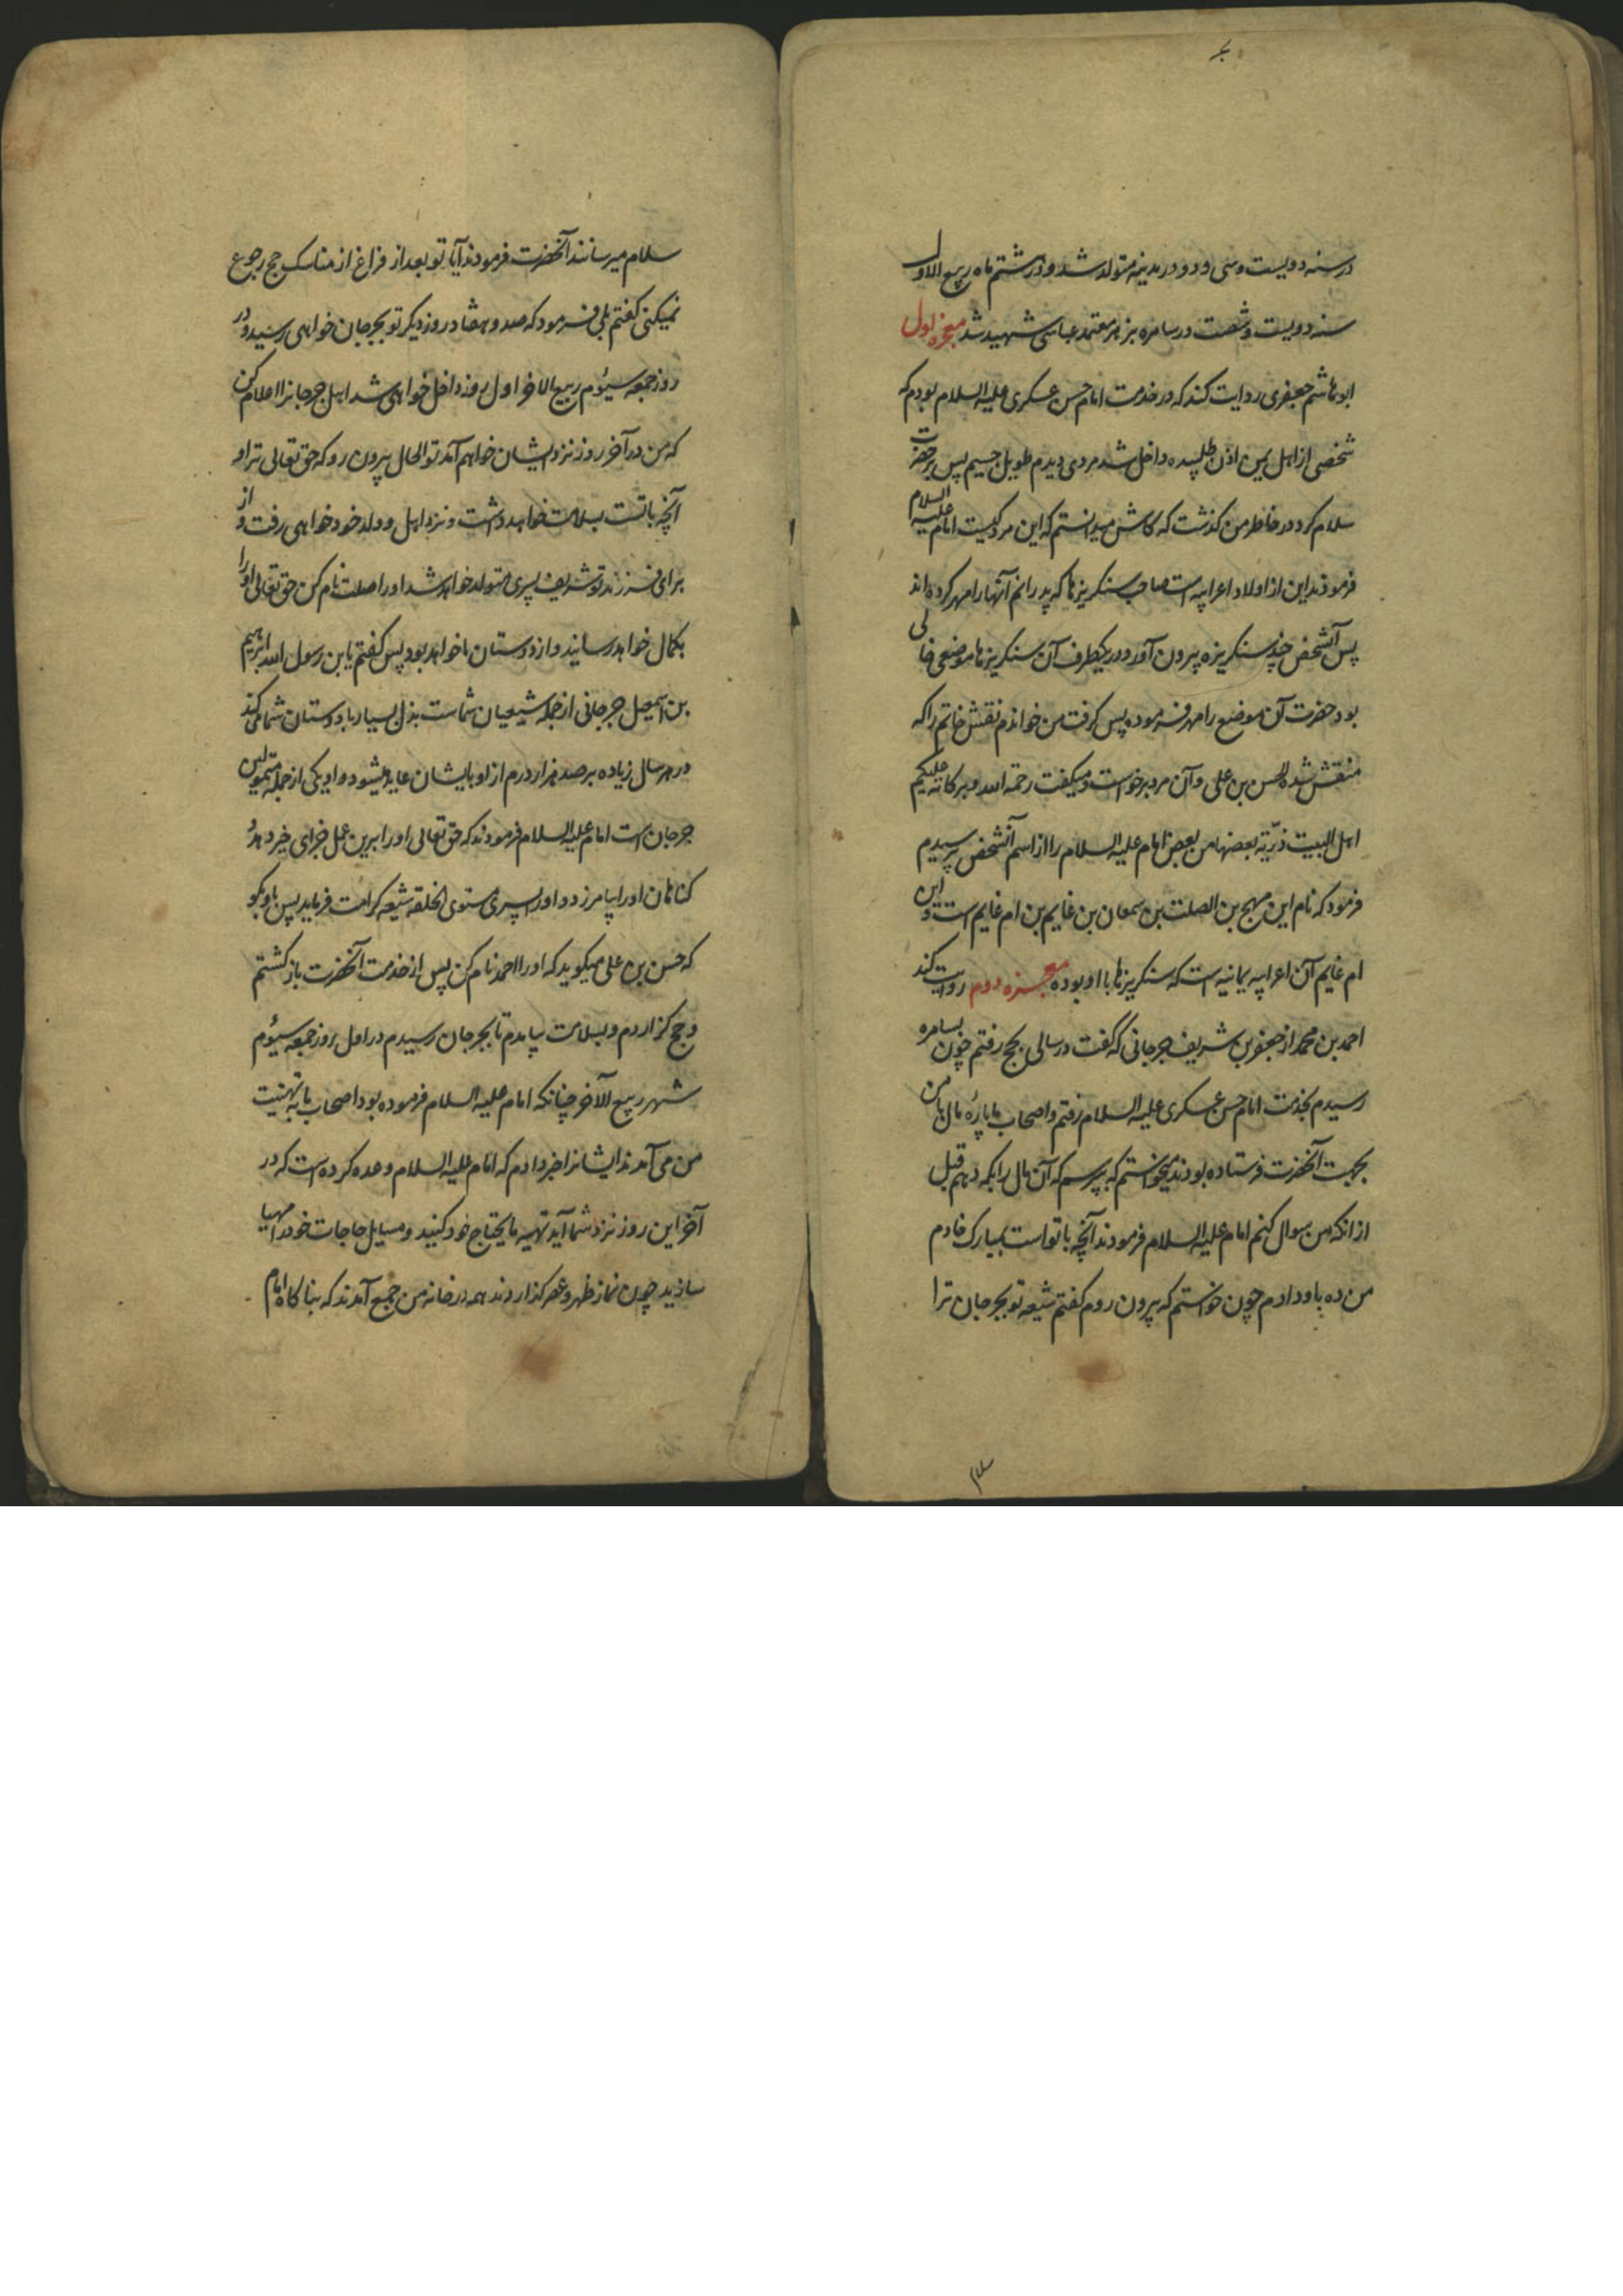 در سنه دویست و سی و دو در مدینه متولد شد و در هشتم ماه ربیع الاول
سنه دویست و شصت در سامره بزهر معتمد عباسی شهید شد معجزه اول
ابو هاشم جعفری روایت کند که در خدمت امام حسن عسکری علیه السلام بودم که
شخصی از اهل یمن اذن طلبیده داخل شد مردی دیدم طویل جسیم پس بر حضرت
سلام کرد در خاطر من کذشت که کاش میدانستم که این مرد کیست امام علیه السلام
فرمودند این از اولاد اعرابیه است صاحب سنکریزها که پدرانم آنها را مهر کرده اند
پس آنشخص چند سنکریزه بیرون آورد و در یکطرف آن سنکریزها موضعی خالی
بود حضرت آن موضع را مهر فرموده پس کرفت من خواندم نقش خاتم را که
منقش شده الحسن بن علی و آن مرد برخواست و میکفت رحمة الله و برکاته علیکم
اهل البیت ذرّیة بعضها من بعض امام علیه السلام را از اسم آنشخص پرسیدم
فرمود که نام این مهجع بن الصلت بن سمعان بن غایم بن ام غایم است و این
ام غایم آن اعرابیه یمانیه است که سنکریزها با او بوده معجزه دوم روایت کند
احمد بن محمد از جعفر بن شریف جرجانی که گفت در سالی بحج رفتم چون بسامره
رسیدم بخدمت امام حسن عسکری علیه السلام رفتم و اصحاب ما پارهٔ مال با من
بجهت آنحضرت فرستاده بودند میخواستم که بپرسم که آن مال را بکه دهم قبل
از انکه من سوال کنم امام علیه السلام فرمودند آنچه با تو است بمبارک خادم
من ده باو دادم چون خواستم که بیرون روم کفتم شیعه تو بجرجان ترا
سلام میرسانند آنحضرت فرمودند آیا تو بعد از فراغ از مناسک حج رجوع
نمیکنی کفتم بلی فرمود که صد و هفتاد روز دیکر تو بجرجان خواهی رسید و در
روز جمعه سیوم ربیع الاخر اول روز داخل خواهی شد اهل جرجانرا اعلام کن
که من در آخر روز نزد ایشان خواهم آمد تو الحال بیرون رو که حق تعالی ترا و
آنچه با تست بسلامت خواهد داشت و نزد اهل و ولد خود خواهی رفت و از
برای فرزند تو شریف پسری متولد خواهد شد او را صلت نام کن حق تعالی او را
بکمال خواهد رسانید و از دوستان ما خواهد بود پس کفتم یا بن رسول الله ابرهیم
بن اسمعیل جرجانی از جمله شیعیان شماست بذل بسیار با دوستان شما می کند
در هر سال زیاده بر صد هزار درم از او بایشان عاید میشود و او یکی از جمله متمولین
جرجان است امام علیه السلام فرمودند که حق تعالی او را برین عمل جزای خیر دهد و
کناهان او را بیامرزد و او را پسری ستوی الخلقه شیعه کرامت فرماید پس باو بکو
که حسن بن علی میکوید که او را احمد نام کن پس از خدمت آنحضرت بازکشتم
و حج کزاردم و بسلامت بیامدم تا بجرجان رسیدم در اول روز جمعه سیوم
شهر ربیع الآخر چنانکه امام علیه السلام فرموده بود اصحاب ما به تهنیت
من می آمدند ایشانرا خبر دادم که امام علیه السلام وعده کرده است که در
آخر این روز نزد شما آید تهیه ما یحتاج خود کنید و مسایل حاجات خود را مهیا
سازید چون نماز ظهر و عصر کذاردند همه در خانه من جمع آمدند که بناکاه امام